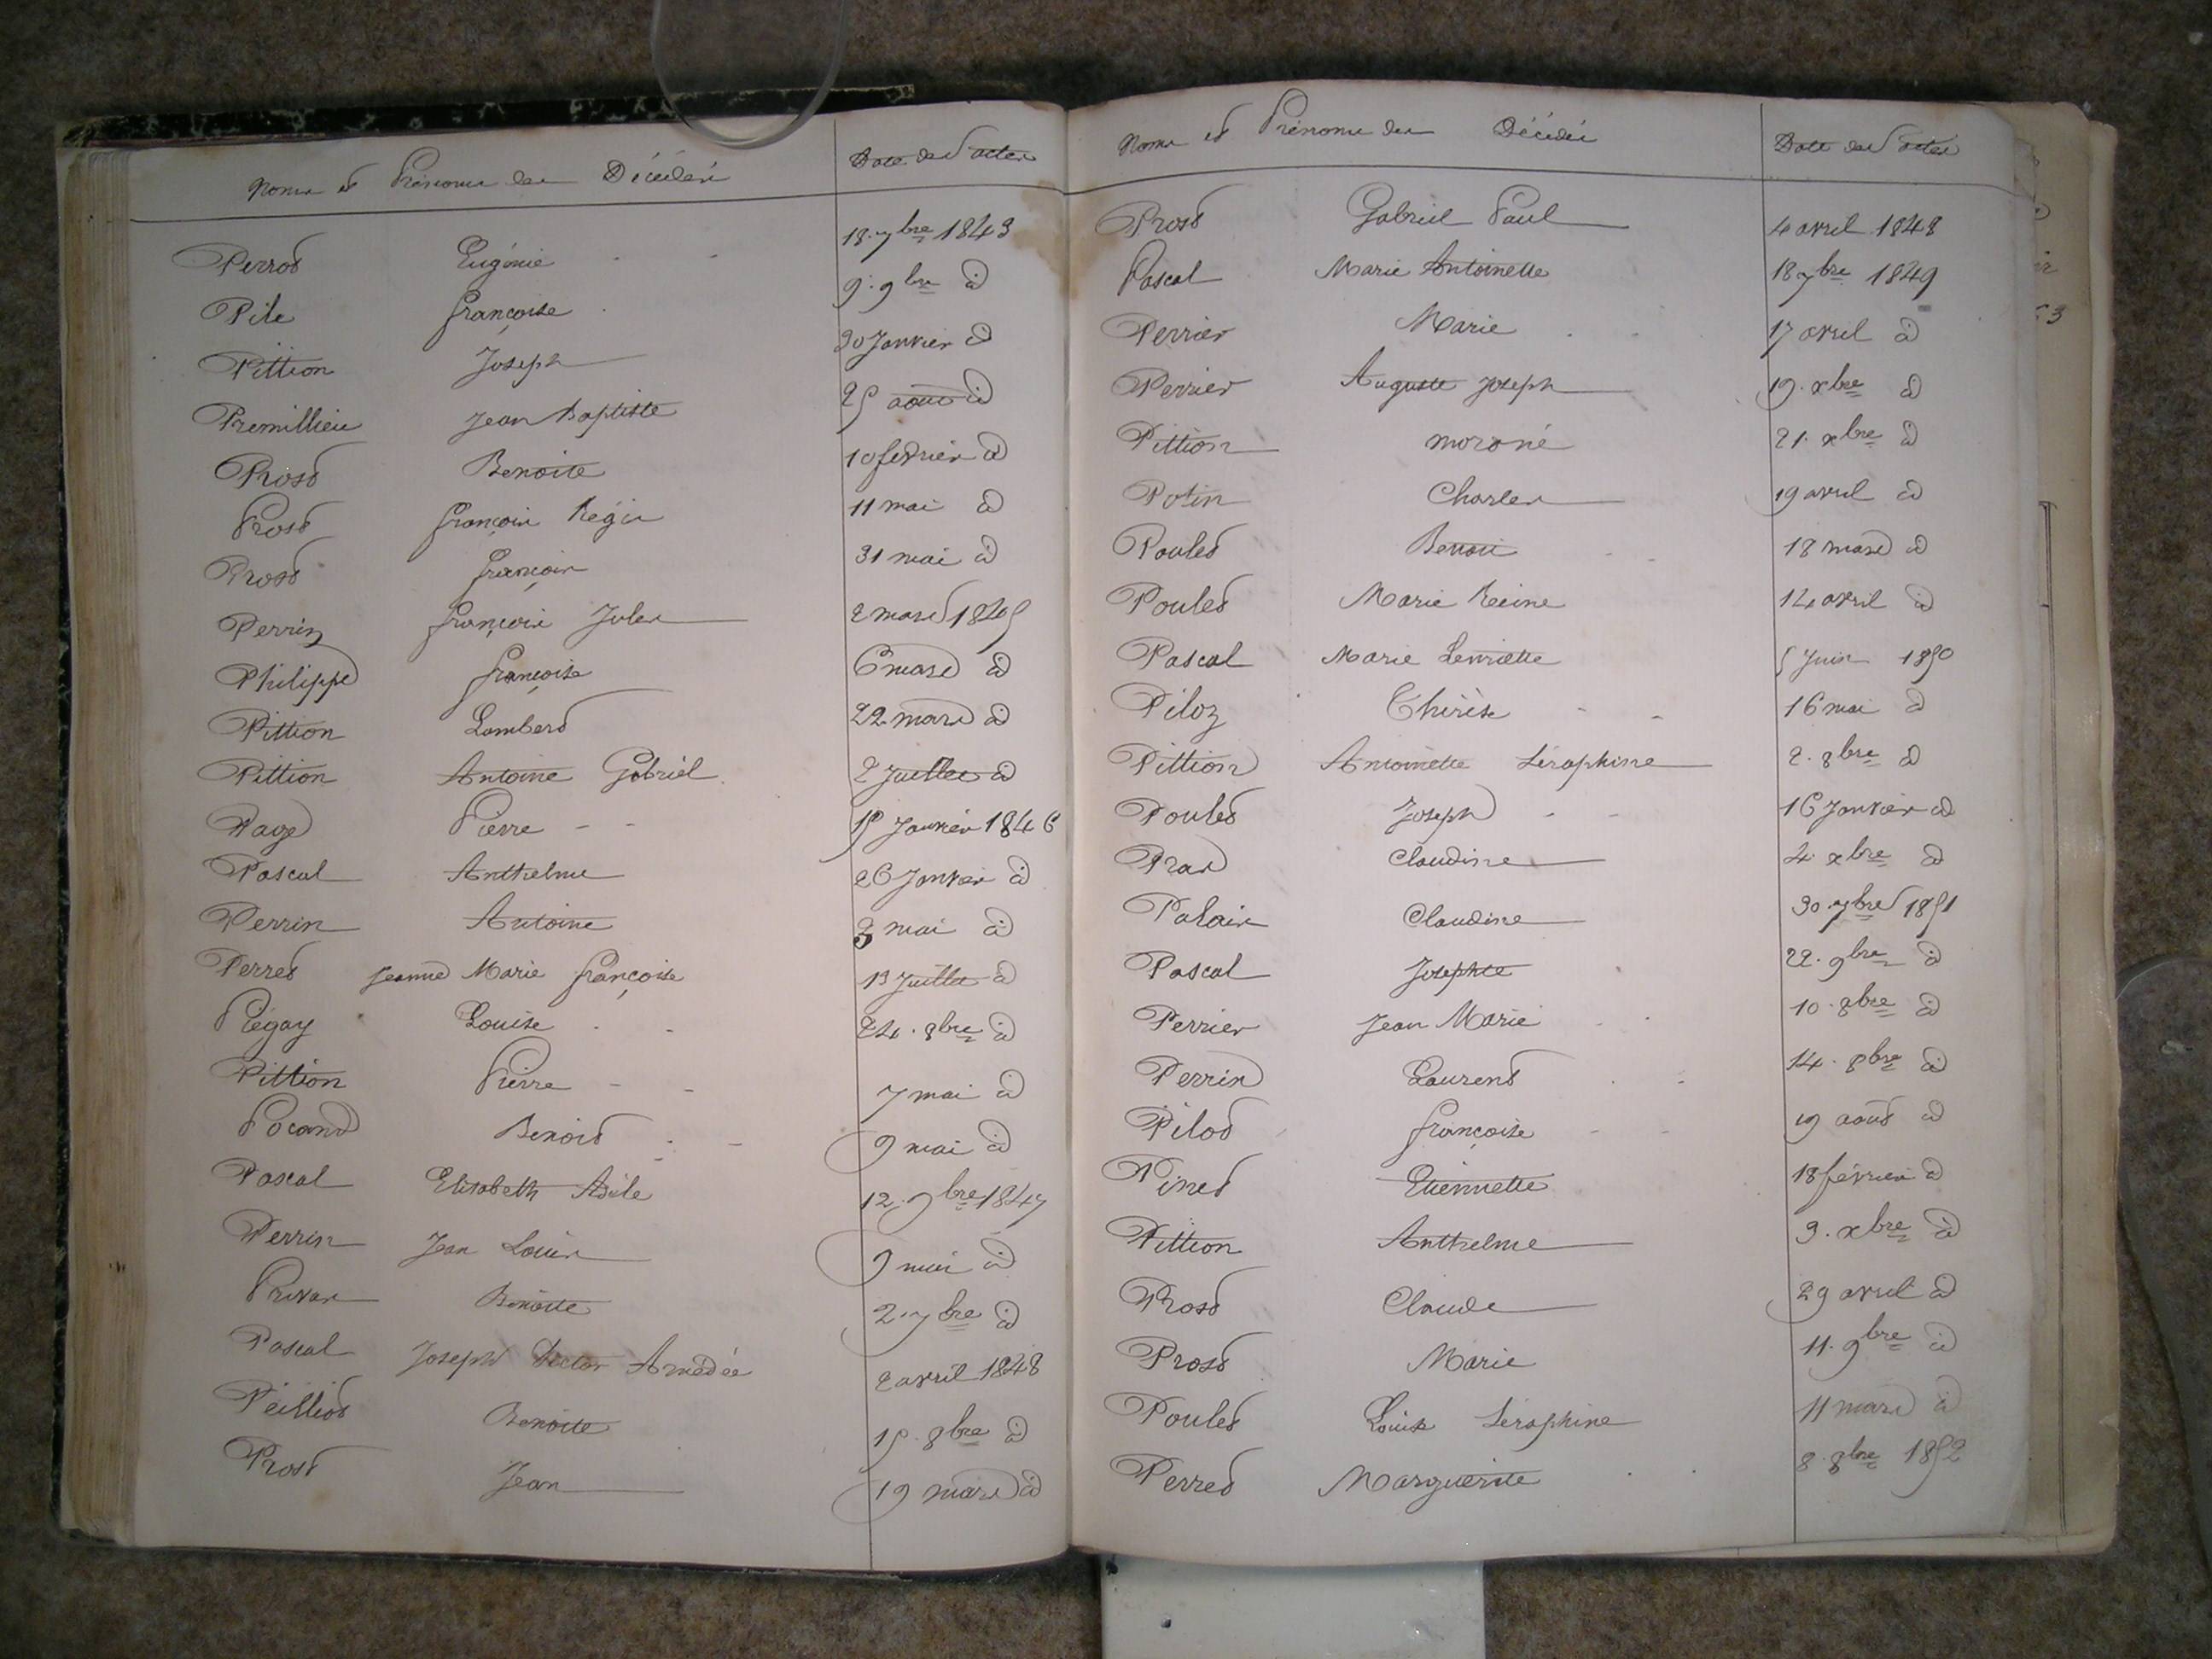 Noms et Prénoms des Décédés Date des actes
Perrod Eugénie 18. 7bre 1843
Pile françoise 9. 9bre d
Pittion Joseph 30 Janvier d
Premillieu Jean Baptiste 25 aout d
Prost Benoite 10 fevrier d
Prost françois Régis 11 mai d
Prost françois 31 mai d
Perrin françois Jules 2 mars 1845
Philippe françoise 6 mars d
Pittion Lambert 22 mars d
Pittion Antoine Gabriel 2 Juillet d
Page Pierre 15 Janvier 1846
Pascal Anthelme 26 Janvier d
Perrin Antoine 3 mai d
Perret Jeanne Marie françoise 13 Juillet d
Pégay Louise 24. 8bre d
Pittion Pierre 7 mai d
Pocand Benoit 9 mai d
Pascal Elisabeth Adèle 12. 9bre 1847
Perrin Jean Louis 9 mai d
Privas Benoite 2. 7bre d
Pascal Joseph Victor Amédée 2 avril 1848
Peilliod Benoite 15. 8bre d
Prost Jean 19 mars d
Noms et Prénoms des Décédés Date des actes
Prost Gabriel Paul 4 avril 1848
Pascal Marie Antoinette 18 7bre 1849
Perrier Marie 17 avril d
Perrier Auguste Joseph 19. xbre d
Pittion moroné 21. xbre d
Potin Charles 19 avril d
Poulet Benoit 18 mars d
Poulet Marie Reine 14 avril d
Pascal Marie Henriette 5 Juin 1850
Piloz Thérèse 16 mai d
Pittion Antoinette Séraphine 2. 8bre d
Poulet Joseph 16 Janvier d
Pras Claudine 4. xbre d
Palais Claudine 30. 7bre 1851
Pascal Josephte 22. 9bre d
Perrier Jean Marie 10. 8bre d
Perrin Laurent 14. 8bre d
Pilod françoise 19 aout d
Pinet Etiennette 18 février d
Pittion Anthelme 9. xbre d
Prost Claude 29 avril d
Prost Marie 11. 9bre d
Poulet Louise Séraphine 11 mars d
Perret Marguerite 8. 8bre 1852